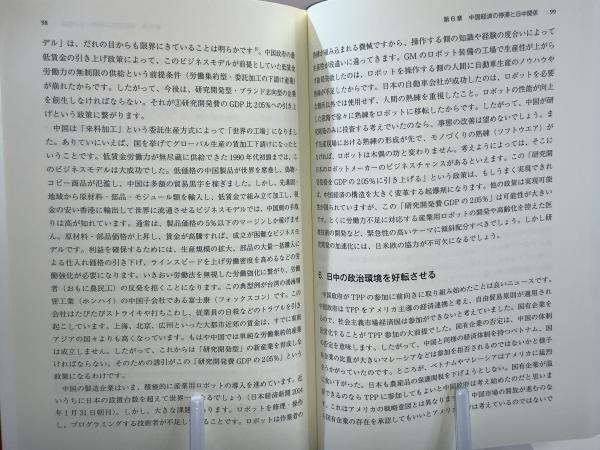 98
デル」は、だれの目からも限界にきていることは明らかです
低賃金の引き上げ政策によって、このビジネスモデルが前提としていた低賃
労働力の無制限の供給という前提条件（労働集約型・委託加工の下請け産業）
が崩れたからです。したがって、今後は、研究開発型・ブランド志向型の企業
を創生しなければならない。それが③研究開発費のGDP比2.05%への引き上
げという政策に繋がります。
中国は「来料加工」という委託生産方式によって「世界の工場」になりまし
た。ありていにいえば、国を挙げてグローバル生産の賃加工下請けになったと
いうことです。低賃金労働力が無尽蔵に供給できた1990年代初頭までは、こ
のビジネスモデルは大成功でした。低価格の中国製品が世界を席巻し、偽物・
コピー商品が氾濫し、中国は多額の貿易黒字を稼ぎました。しかし、先進国・
地域から原材料・部品・モジュール類を輸入し、低賃金で組み立て加工し、税
金の安い香港に輸出して世界に流通させるビジネスモデルでは、中国側の手取
りは高が知れています。通常は、製品価格の5%以下のマージンしか稼げませ
ん。原材料・部品価格が上昇し、賃金が高騰すれば、成立が困難なビジネスモ
デルです。利益を確保するためには、生産規模の拡大、部品の大量一括購入に
よる仕入れ価格の引き下げ、ラインスピードを上げ労働密度を高めるなどの労
働強化が必要になります。いきおい労働法を無視した労働強化に繋がり、労働
者（おもに農民工）の反発を招くことになります。この典型例が台湾の鴻海精
密工業（ホンハイ）の中国子会社である富士康（フォックスコン）です。この
会社はたびたびストライキや打ちこわし、従業員の自殺などのトラブルを引き
起こしています。上海、北京、広州といった大都市近郊の賃金は、すでに東南
アジアの国々よりも高くなっています。もはや中国では単純な労働集約的産業
は成立しません。したがって、これからは「研究開発型」の新産業を育成しな
ければならない。そのための誘引がこの「研究開発費がGDPの2.05%」という
政策になるわけです。
中国の製造企業はいま、積極的に産業用ロボットの導入を進めています。近
いうちに日本の設置台数を超えて世界一になるでしょう（日本経済新聞 2014
年1月31日朝刊）。しかし、大きな課題
し、プログラミングする技術者が不足していること
ロボットを修理・操作
ロボットは作業者の
第6章 中国経済の停滞と日中関係 99
熟練が組み込まれる機械ですから、操作する側の知識や経験の度合いによって
生産性が段違いに違ってきます。GMのロボット装備の工場で生産性が上がら
ず結局失敗したのは、ロボットを操作する側の人間に自動車生産のノウハウや
熟練が不足したからです。日本の自動車会社が成功したのは、ロボットを必要
な箇所以外では使用せず、人間の熟練を重視したこと。ロボットの性能が向上
した段階で徐々に熟練をロボットに移転したからです。したがって、中国が研
究開発のみに投資する考えでいたのなら、事態の改善は望めないでしょう。ま
ず生産現場における熟練の形成が先で、モノづくりの熟練（ソフトウエア）が
なければ、ロボットは木偶の坊と変わりません。考えようによっては、そこに
日本のロボットメーカーのビジネスチャンスがあるといえます。この「研究開
発費をGDPの2.05%に引き上げる」という政策は、もしうまく実現できれ
ば、中国の経済構造を大きく変革する起爆剤になります。他の政策は実現可能
性が限られていますが、この「研究開発費GDPの2.05%」は可能性が大きい
です。とくに労働力不足に対応する産業用ロボットの開発や高齢化を控えた医
療の開発など、緊急性の高いテーマに傾斜配分すべきでしょう。しかし研
究開発の加速化には、日米欧の協力が不可欠になるでしょう。
6. 日中の政治環境を好転させる
中国政府がTPPの参加に前向きに取り組み始めたことは良いニュースです。
中国政府はTPPをアメリカ主導の経済連携と考え、自由貿易原則が適用され
るので、社会主義市場経済国は参加ができないと考えていました。国有企業を
民営化することがTPP参加の大前提でした。国有企業の否定は、中国の体制
の否定を意味します。したがって、中国と同様の経済体制を持つベトナム、国
有企業の比重が大きいマレーシアなどは参加を拒否されるのではないかと様子
をうかがっていたのです。ところが、ベトナムやマレーシアはアメリカに猛烈
に食い下がった。日本も農産品の保護関税を下げようとしない。国有企業が温
存できるのならTPPに参加してもよいと中国政府は考え始めたのだと思いま
す。これはアメリカの戦略意図とは異なります
国有企業の存在を承認してもいいとアメリカ
中国市場の開放が進むのな
は考えているのではないで